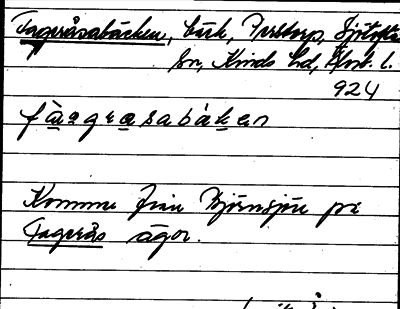 Fageråsabäcken, bäck, Perstorp, Sjötofta
sn, Kinds hd, Älvsb. l.
924
fàageasabákan
Kommer från Björnsjön på
Fagerås ägor.